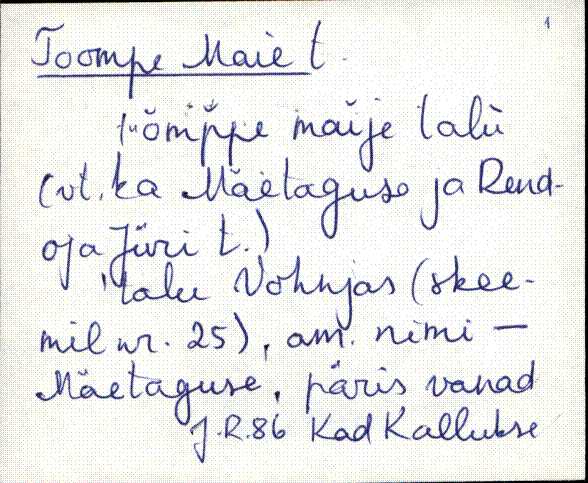 1
Toompe Maie t.
tuŏmp̆pe maĭje talù
(vt. ka Mäetaguse ja Rend-
oja Jüri t.)
talu Vohnjas (skee-
mil nr. 25), am. nimi —
Mäetaguse, päris vanad
J.R.86 Kad Kallukse